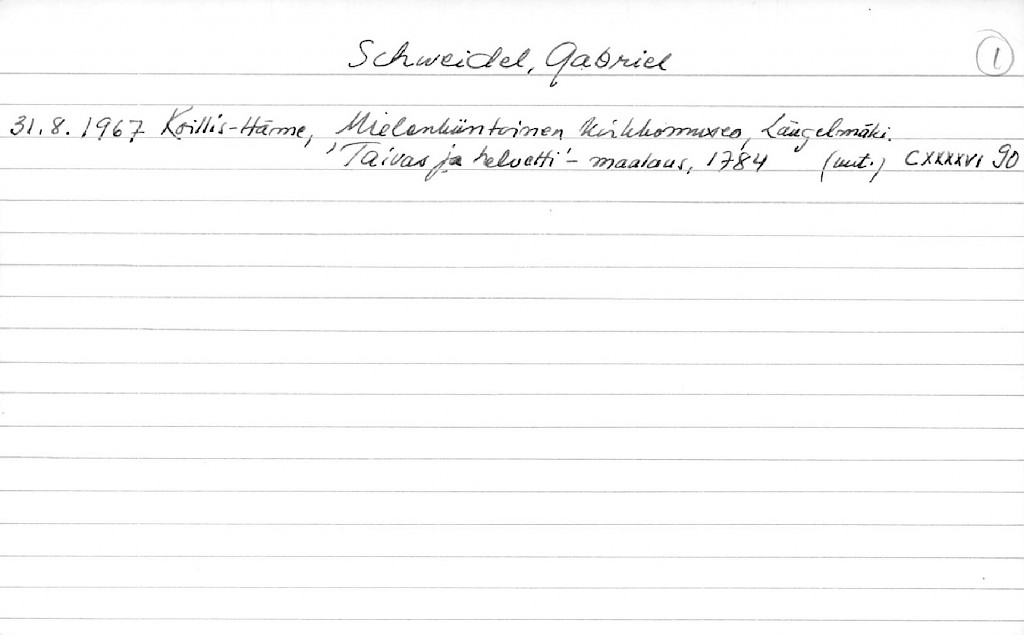 Schweidel, Gabriel 1
31.8.1967 Koillis-Häme, Mielenkiintoinen kirkkomuseo, Längelmäki.
'Taivas ja helvetti'- maalaus, 1784 (uut.) CXXXXVI 90